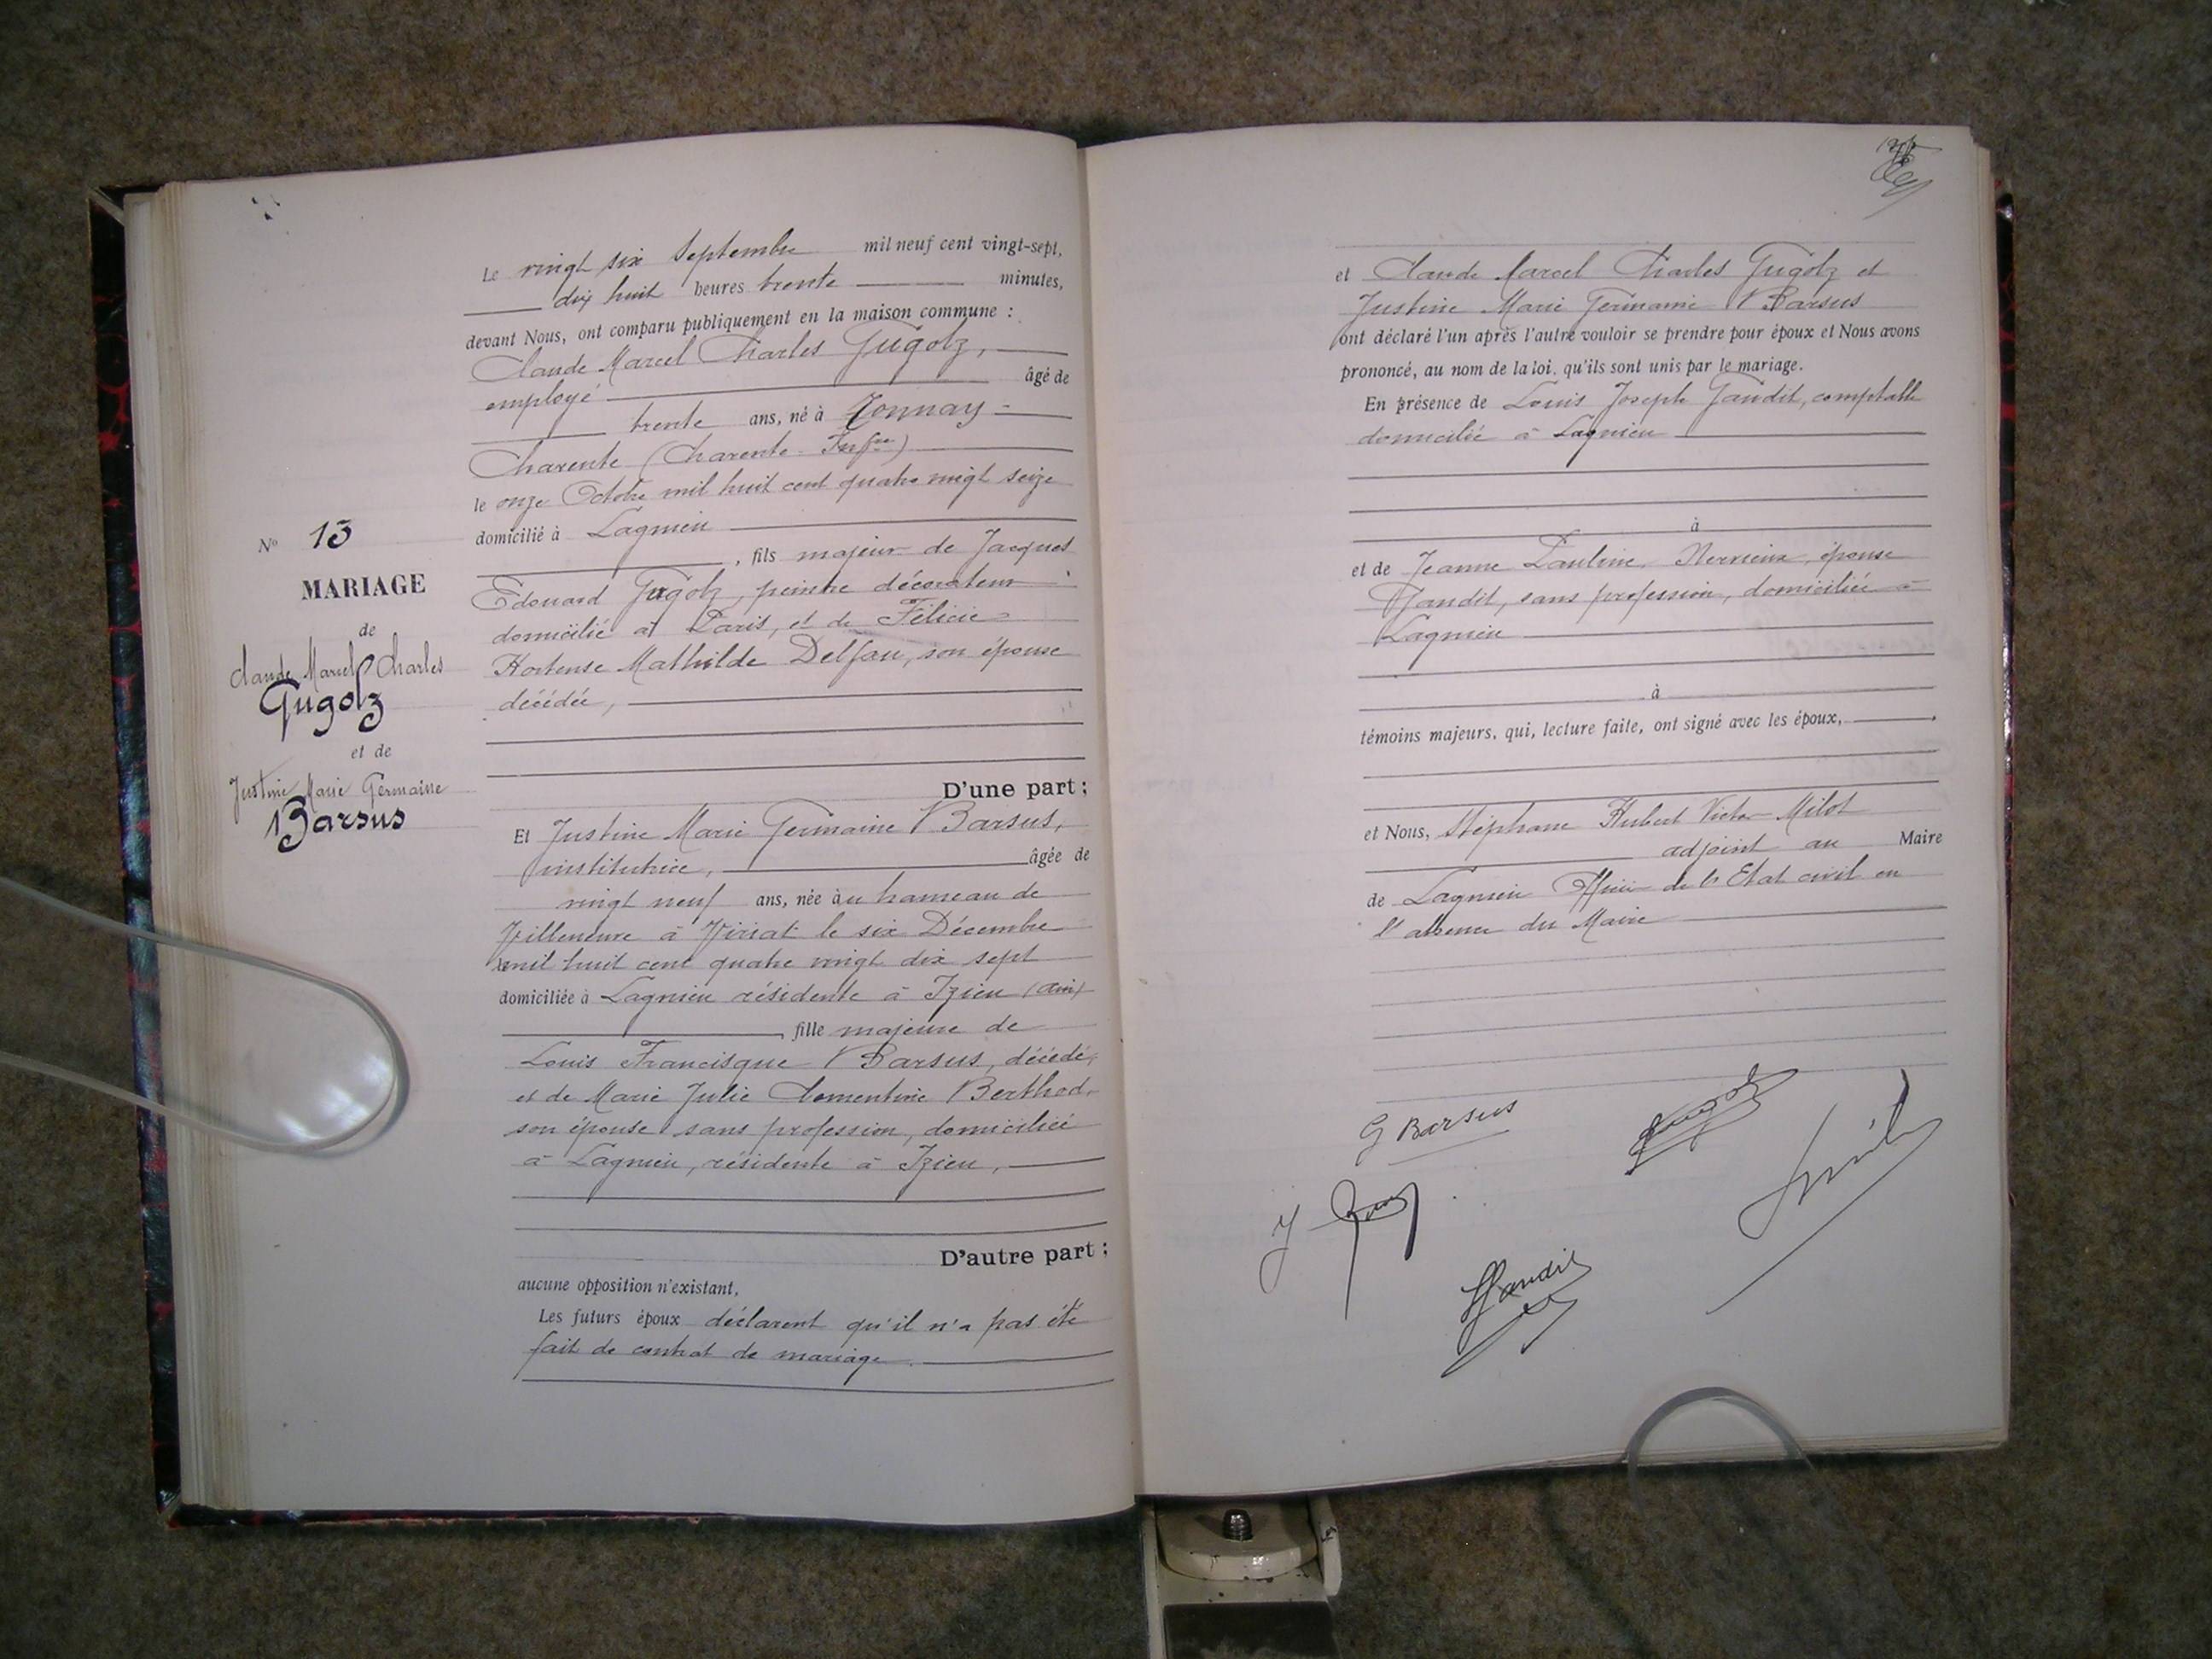 Le vingt six Septembre mil neuf cent vingt-sept,
dix huit heures trente minutes,
devant Nous, ont comparu publiquement en la maison commune :
Claude Marcel Charles Gugolz,
employé âgé de
trente ans, né à Tonnay-
Charente (Charente-Infre)
le onze Octobre mil huit cent quatre vingt seize
domicilié à Lagnieu
, fils majeur de Jacques
Edouard Gugolz, peintre décorateur
domicilié à Paris, et de Félicie
Hortense Mathilde Delfau, son épouse
décédée,
D'une part ;
Et Justine Marie Germaine Barsus,
institutrice, âgée de
vingt neuf ans, née à u hameau de
Villeneuve à Viriat le six Décembre
mil huit cent quatre vingt dix sept
domiciliée à Lagnieu résidente à Izieu (Ain)
, fille majeure de
Louis Francisque Barsus, décédé,
et de Marie Julie Clementine Berthod,
son épouse sans profession, domiciliée
à Lagnieu, résidente à Izieu,
D'autre part ;
aucune opposition n'existant,
Les futurs époux déclarent qu'il n'a pas été
fait de contrat de mariage.
No 13
MARIAGE
de
Claude Marcel Charles
Gugolz
et de
Justine Marie Germaine
Barsus
et Claude Marcel Charles Gugolz et
Justine Marie Germaine Barsus
ont déclaré l'un après l'autre vouloir se prendre pour époux et Nous avons
prononcé, au nom de la loi, qu'ils sont unis par le mariage.
En présence de Louis Joseph Gandit, comptable
domicilié à Lagnieu
à
et de Jeanne Pauline Nerrieux, épouse
Gandit, sans profession, domiciliée à
Lagnieu
à
témoins majeurs, qui, lecture faite, ont signé avec les époux,
et Nous, Stéphane Hubert Victor Milot
adjoint au Maire
de Lagnieu Officier de l'Etat civil en
l'absence du Maire
G Barsus
Gugolz
Gandit